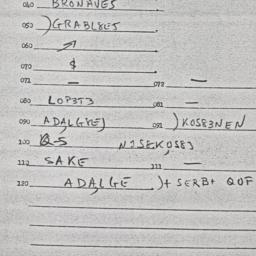 040 BRONAVES
050 )GRABL8E5
060 ↗
070 $
071 — 072 —
080 LOP3T3 081 —
090 ADALGYE) 091 )KOS83NEN
100 Q-5 N2SEKOS83
110 SAKE 111 —
120 ADALGE )+ SERB+ QOF